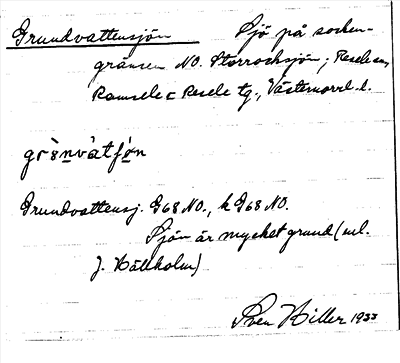 Grundvattensjön Sjö på socken-
gränsen NO. Storrocksjön; Resele sn,
Ramsele o Resele tg., Västernorrl. l.
Grundvattensj. G68 NO., k G68 NO.
Sjön är mycket grund (enl.
J. Hällholm)
Sven Hiller 1933